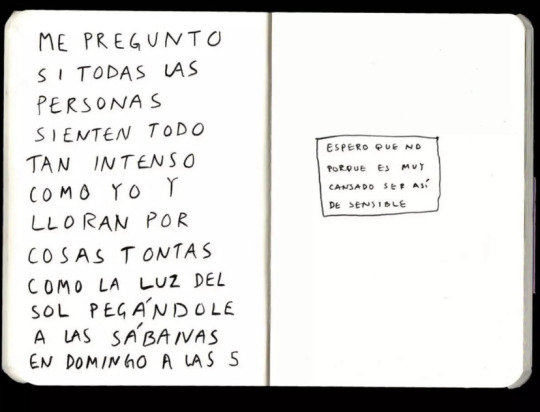 ME PREGUNTO
SI TODAS LAS
PERSONAS
SIENTEN TODO
TAN INTENSO
COMO YO Y
LLORAN POR
COSAS TONTAS
COMO LA LUZ DEL
SOL PEGÁNDOLE
A LAS SÁBANAS
EN DOMINGO A LAS 5
ESPERO QUE NO
PORQUE ES MUY
CANSADO SER ASÍ
DE SENSIBLE